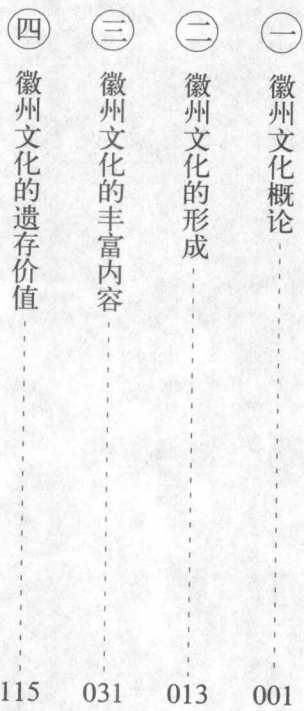 ㊀ 徽州文化概论 001
㊁ 徽州文化的形成 013
㊂ 徽州文化的丰富内容 031
㊃ 徽州文化的遗存价值 115